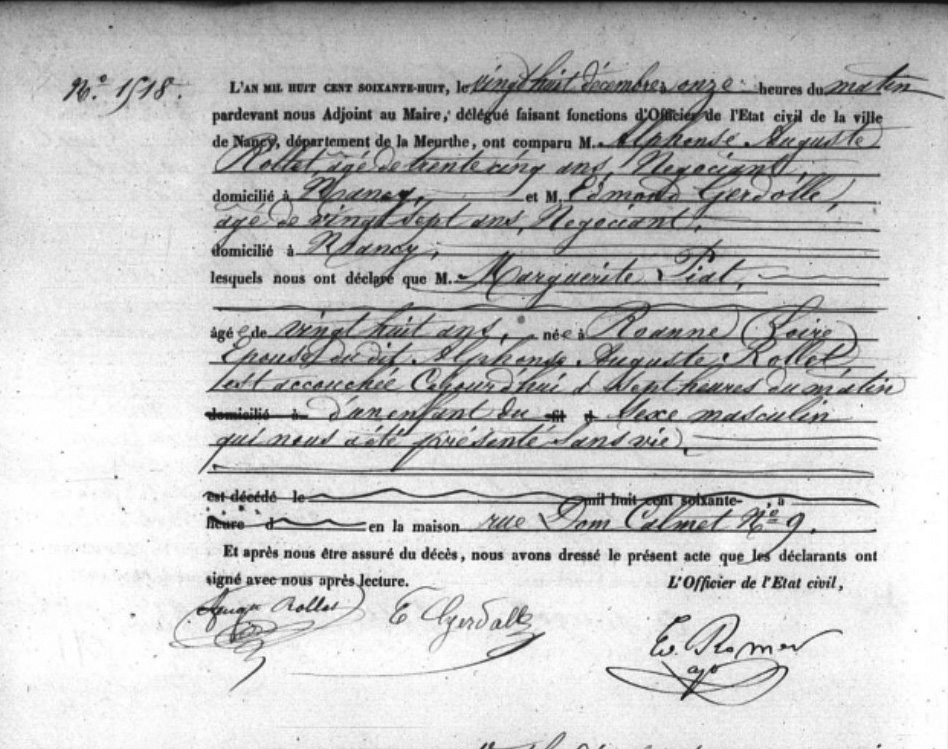 N.° 1518.
L'AN MIL HUIT CENT SOIXANTE-HUIT, le vingt huit décembre à onze heures du matin
pardevant nous Adjoint au Maire, délégué faisant fonctions d'Officier de l'Etat civil de la ville
de Nancy, département de la Meurthe, ont comparu M. Alphonse Auguste
Rollet, âgé de trente cinq ans, Negociant,
domicilié à Nancy, et M. Edmond Gerdolle,
âgé de vingt sept ans, Negociant,
domicilié à Nancy,
lesquels nous ont déclaré que M. Marguerite Piat,
âgée de vingt huit ans, née à Roanne (Loire)
Epouse du dit Alphonse Auguste Rollet
est accouchée Cejourd'hui à Sept heures du matin
domicilié à d'un enfant du fil d Sexe masculin
qui nous a été présenté Sans vie.
est décédé le mil huit cent soixante- , à
heure d en la maison rue Dom Calmet N° 9.
Et après nous être assuré du décès, nous avons dressé le présent acte que les déclarants ont
signé avec nous après lecture. L'Officier de l'Etat civil,
Augte Rollet E Gerdolle
E. Romer